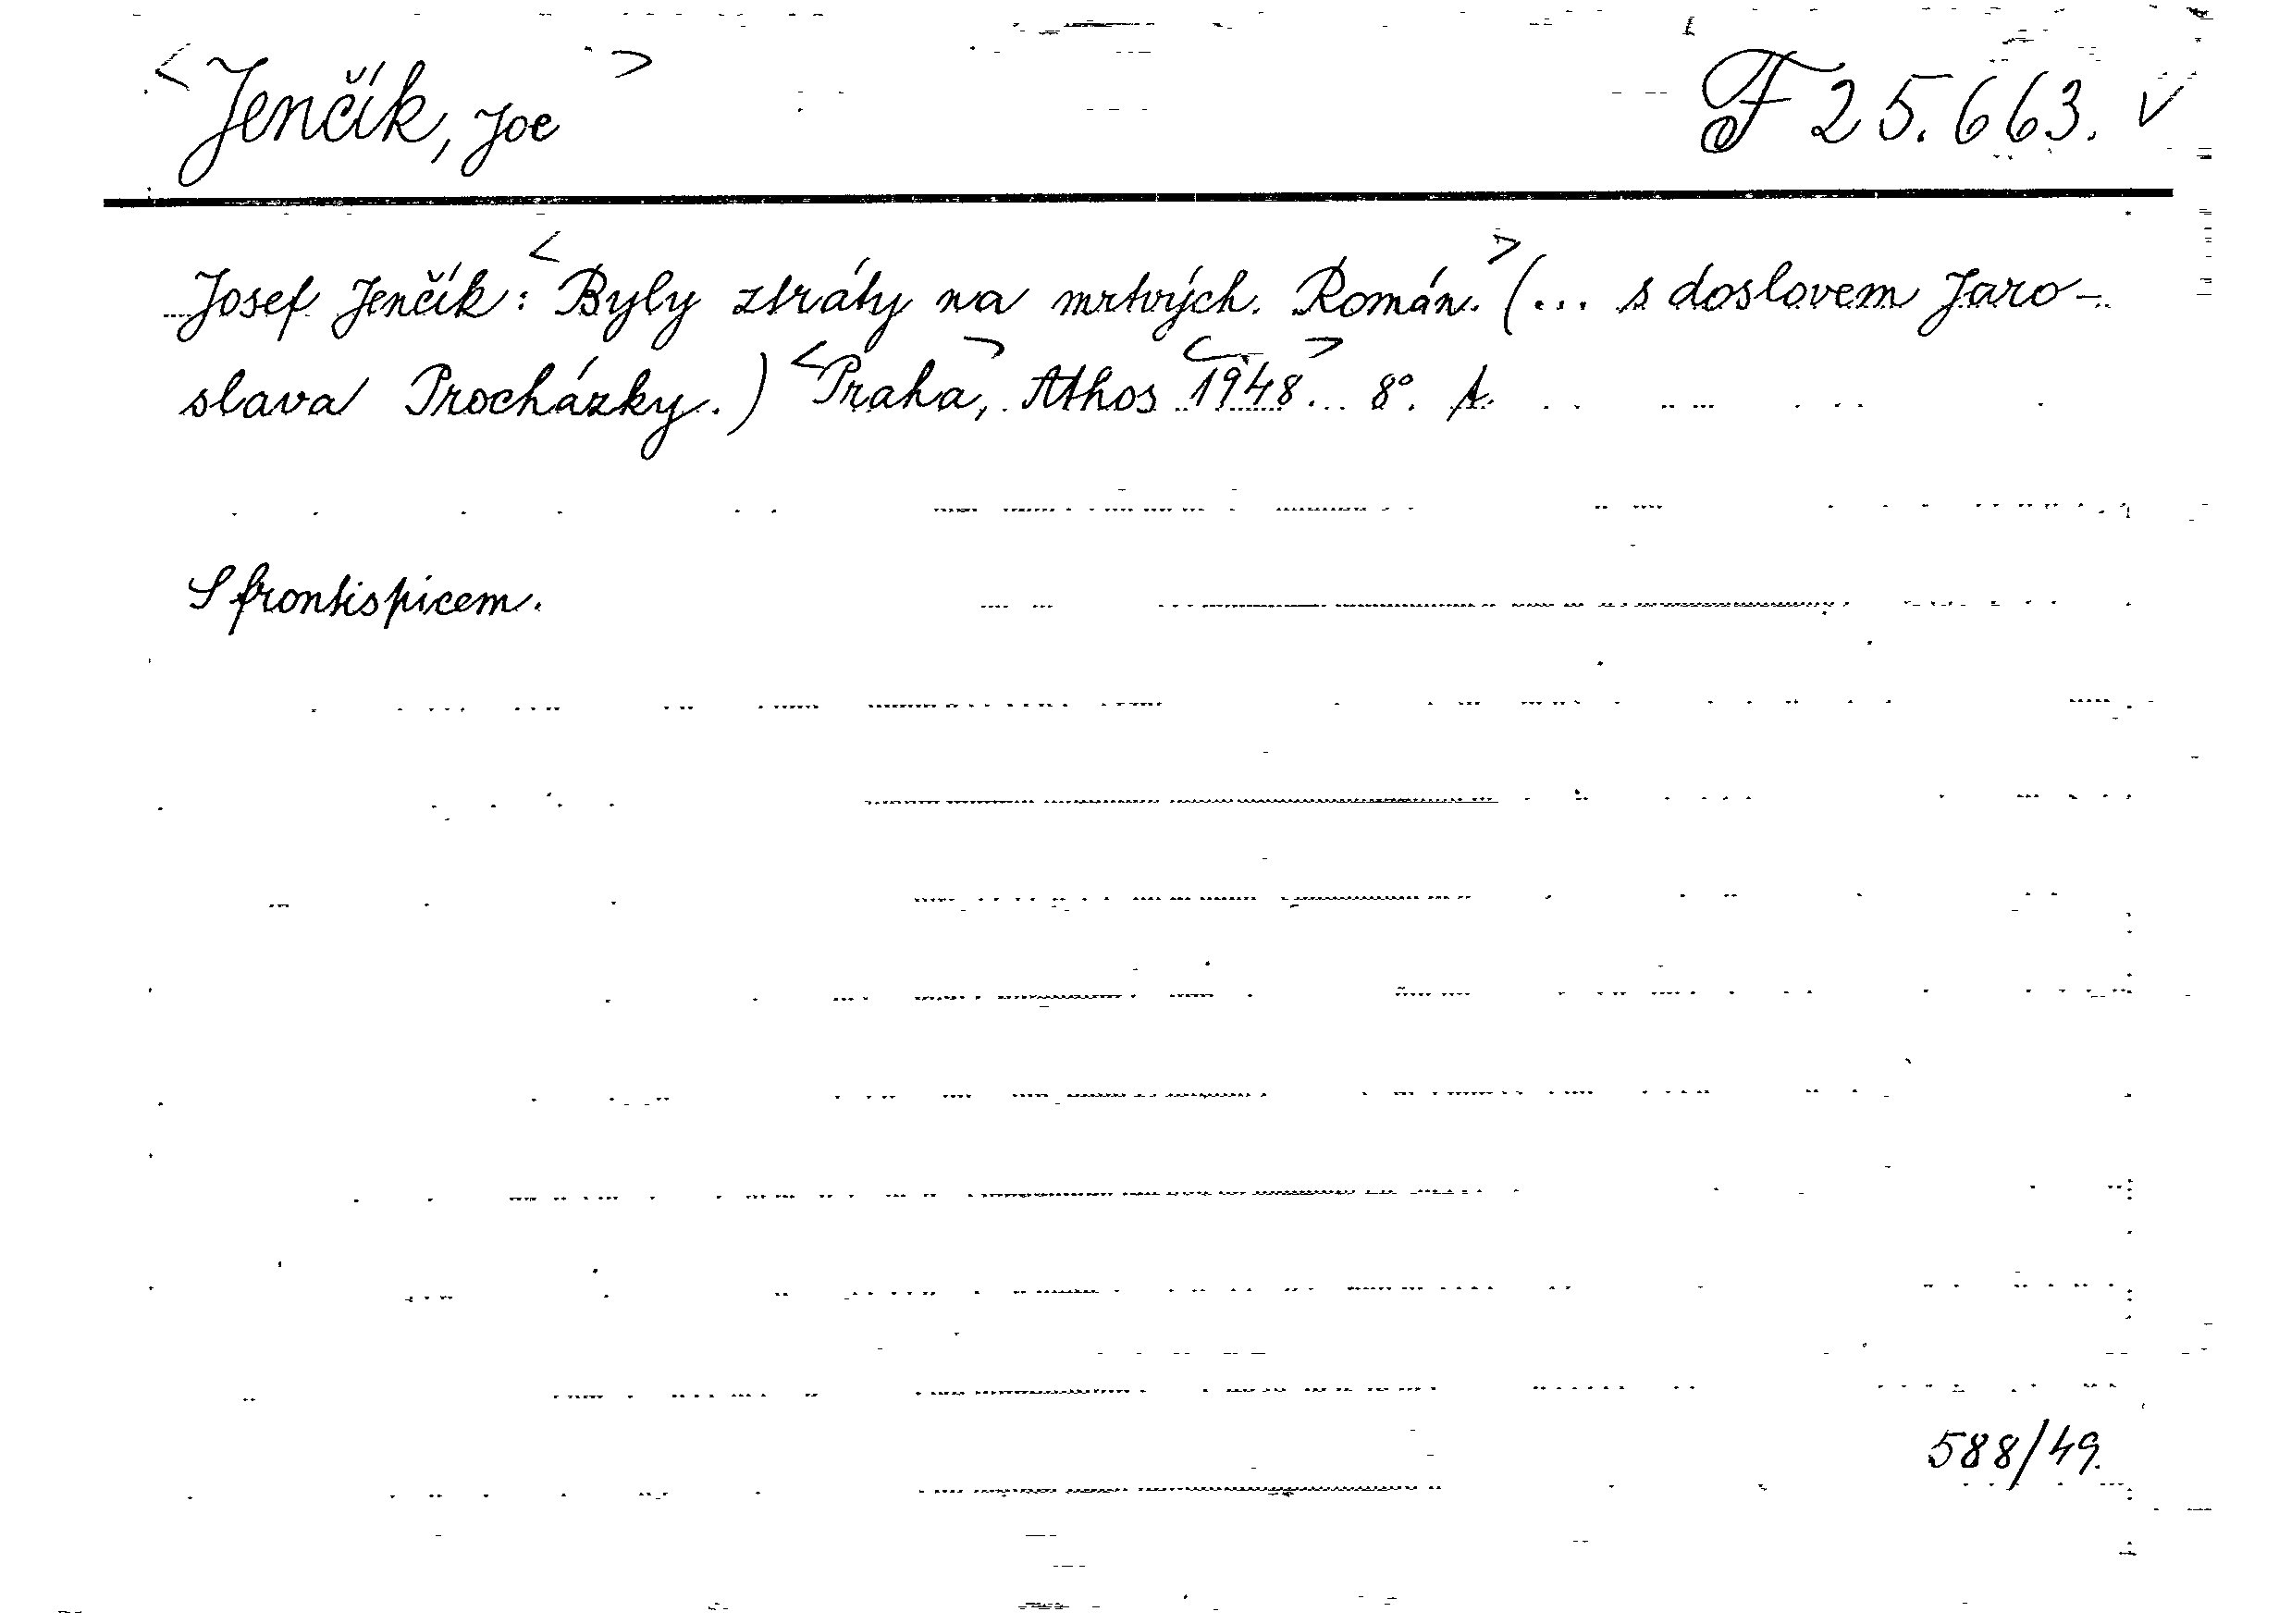 <Jenčík, Joe> F 25.663. √
Josef Jenčík: <Byly ztráty na mrtvých. Román.> (... s doslovem Jaro-
slava Procházky.) <Praha>, Athos <1948>. 8°. A.
S frontispicem.
588/49.